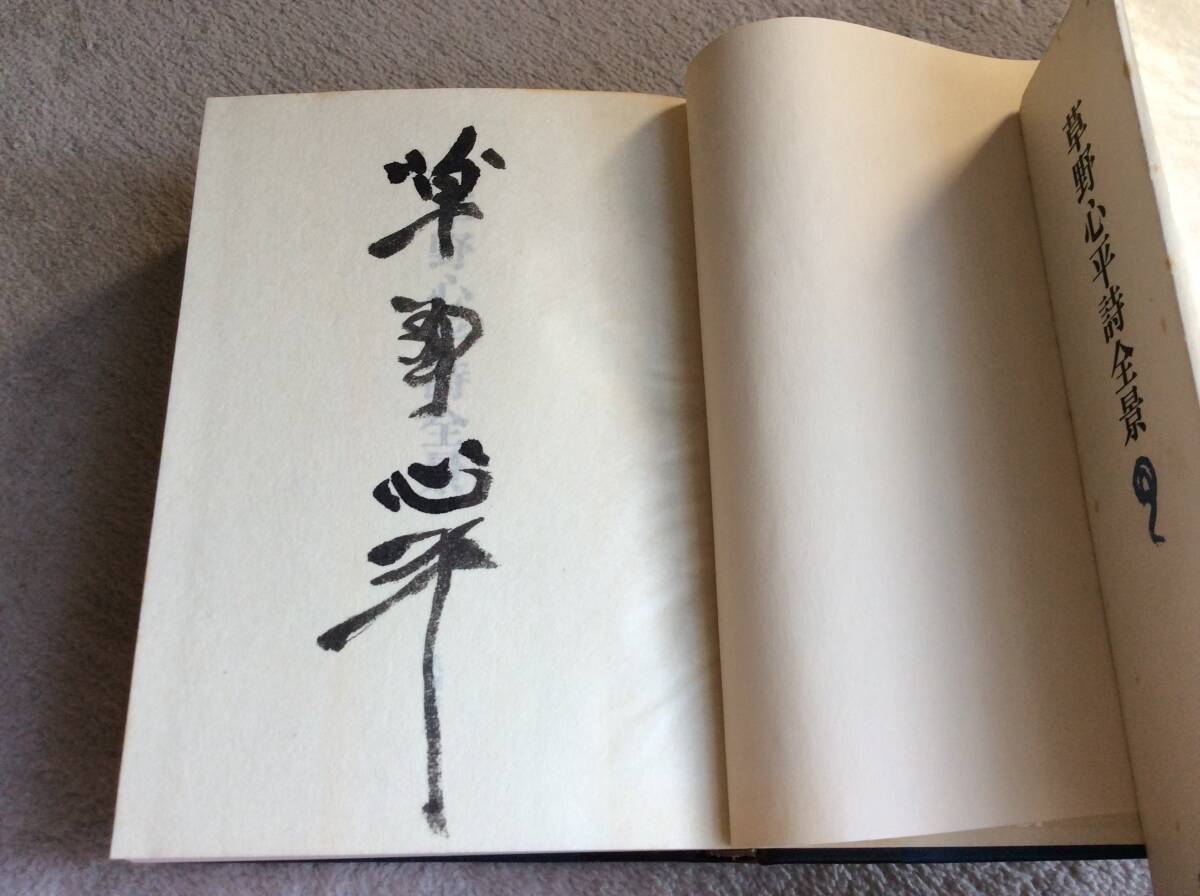 草野心平詩全景
草野心平